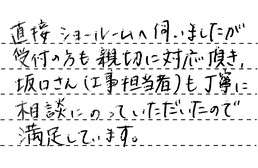 直接ショールームへ伺いましたが
受付の方も親切に対応頂き、
坂口さん(工事担当者)も丁寧に
相談にのっていただいたので
満足しています。